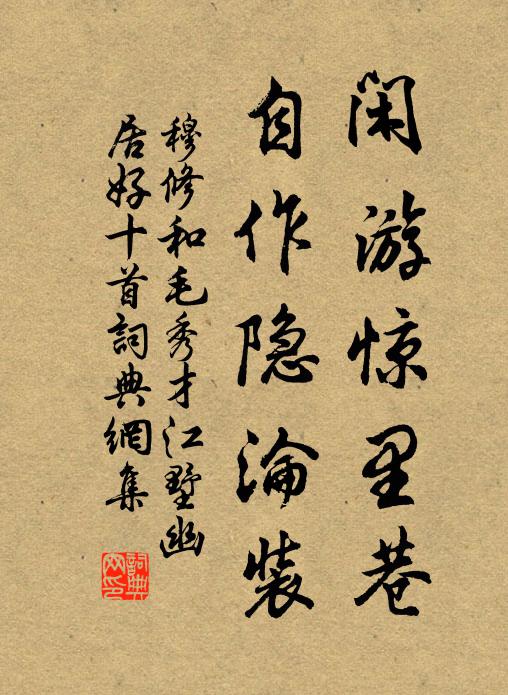 闲游惊里巷
自作隐淪裝
穆修和毛秀才江墅幽
居好十首詞典網集
詞典
网印